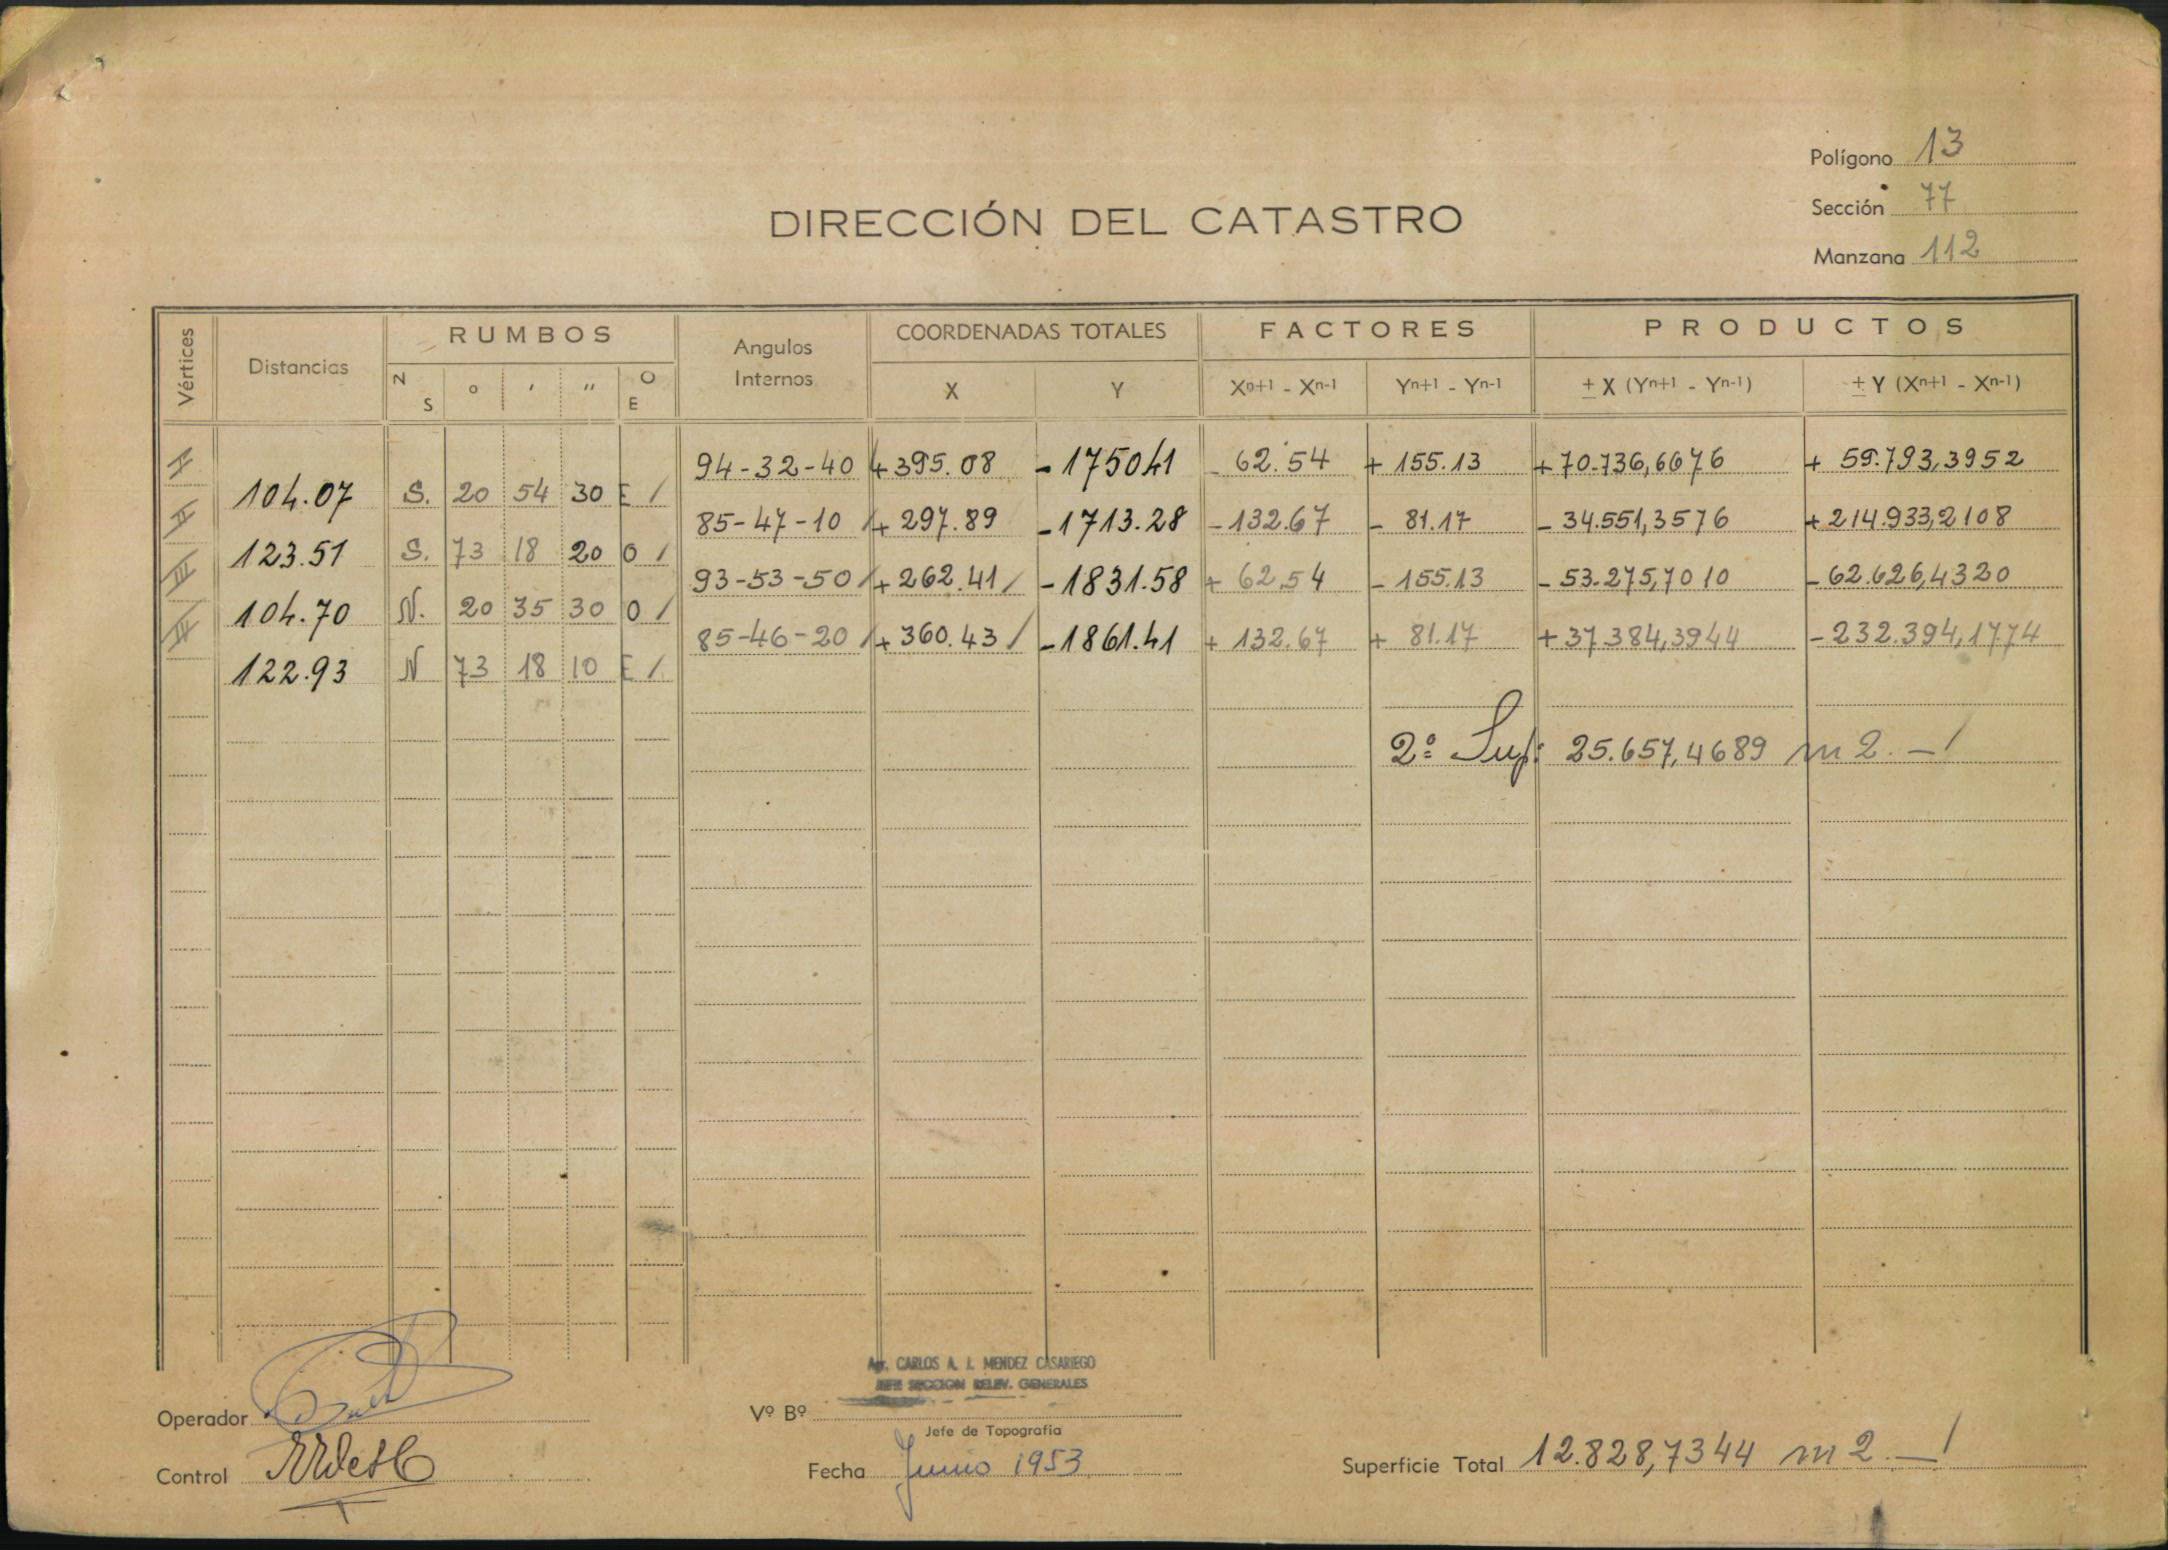 Polígono 13
Sección 77
Manzana 112
DIRECCIÓN DEL CATASTRO
Vértices Distancias RUMBOS Angulos Internos COORDENADAS TOTALES FACTORES PRODUCTOS
N S o ' '' O E X Y Xn+1 - Xn-1 Yn+1 - Yn-1 ± X (Yn+1 - Yn-1) ± Y (Xn+1 - Xn-1)
I 94-32-40 +395.08 -175041 - 62.54 + 155.13 +70.736,6676 + 59.793,3952
104.07 S. 20 54 30 E /
II 85-47-10 / + 297.89 -1713.28 -132.67 - 81.17 - 34.551,3576 +214.933,2108
123.51 S. 73 18 20 O /
III 93-53-50 / + 262.41 / -1831.58 + 62.54 - 155.13 - 53.275,7010 -62.626,4320
104.70 N. 20 35 30 O /
IV 85-46-20 / + 360.43 / -1861.41 + 132.67 + 81.17 +37.384,3944 -232.394,1774
122.93 N 73 18 10 E /
2º Sup: 25.657,4689 m2. — /
Agr. CARLOS A. J. MENDEZ CASARIEGO
JEFE SECCION RELEV. GENERALES
Operador
Vº Bº
Jefe de Topografía
Control
Fecha Junio 1953
Superficie Total 12.828,7344 m2. — /